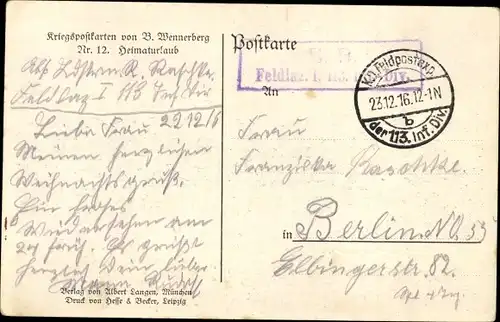 Kriegspostkarten von B. Wennerberg
Nr. 12. Heimaturlaub
Postkarte
Feldlaz. 1. 113. Div.
K.D. Feldpostexp.
23.12.16.12-1N
b
der 113. Inf. Div.
An
Abs. R. Raschke
Feldlaz I 113 Inf Div
Liebe Frau 22 12 16
Meinen herzlichen
Weihnachtsgruß.
Ein frohes
Wiedersehen am
früh. Es grüßt
herzlich Dein lieber
Mann Rudolf
Frau
Franziska Raschke
in Berlin NO 55
Elbingerstr. 82.
Verlag von Albert Langen, München
Druck von Hesse & Becker, Leipzig